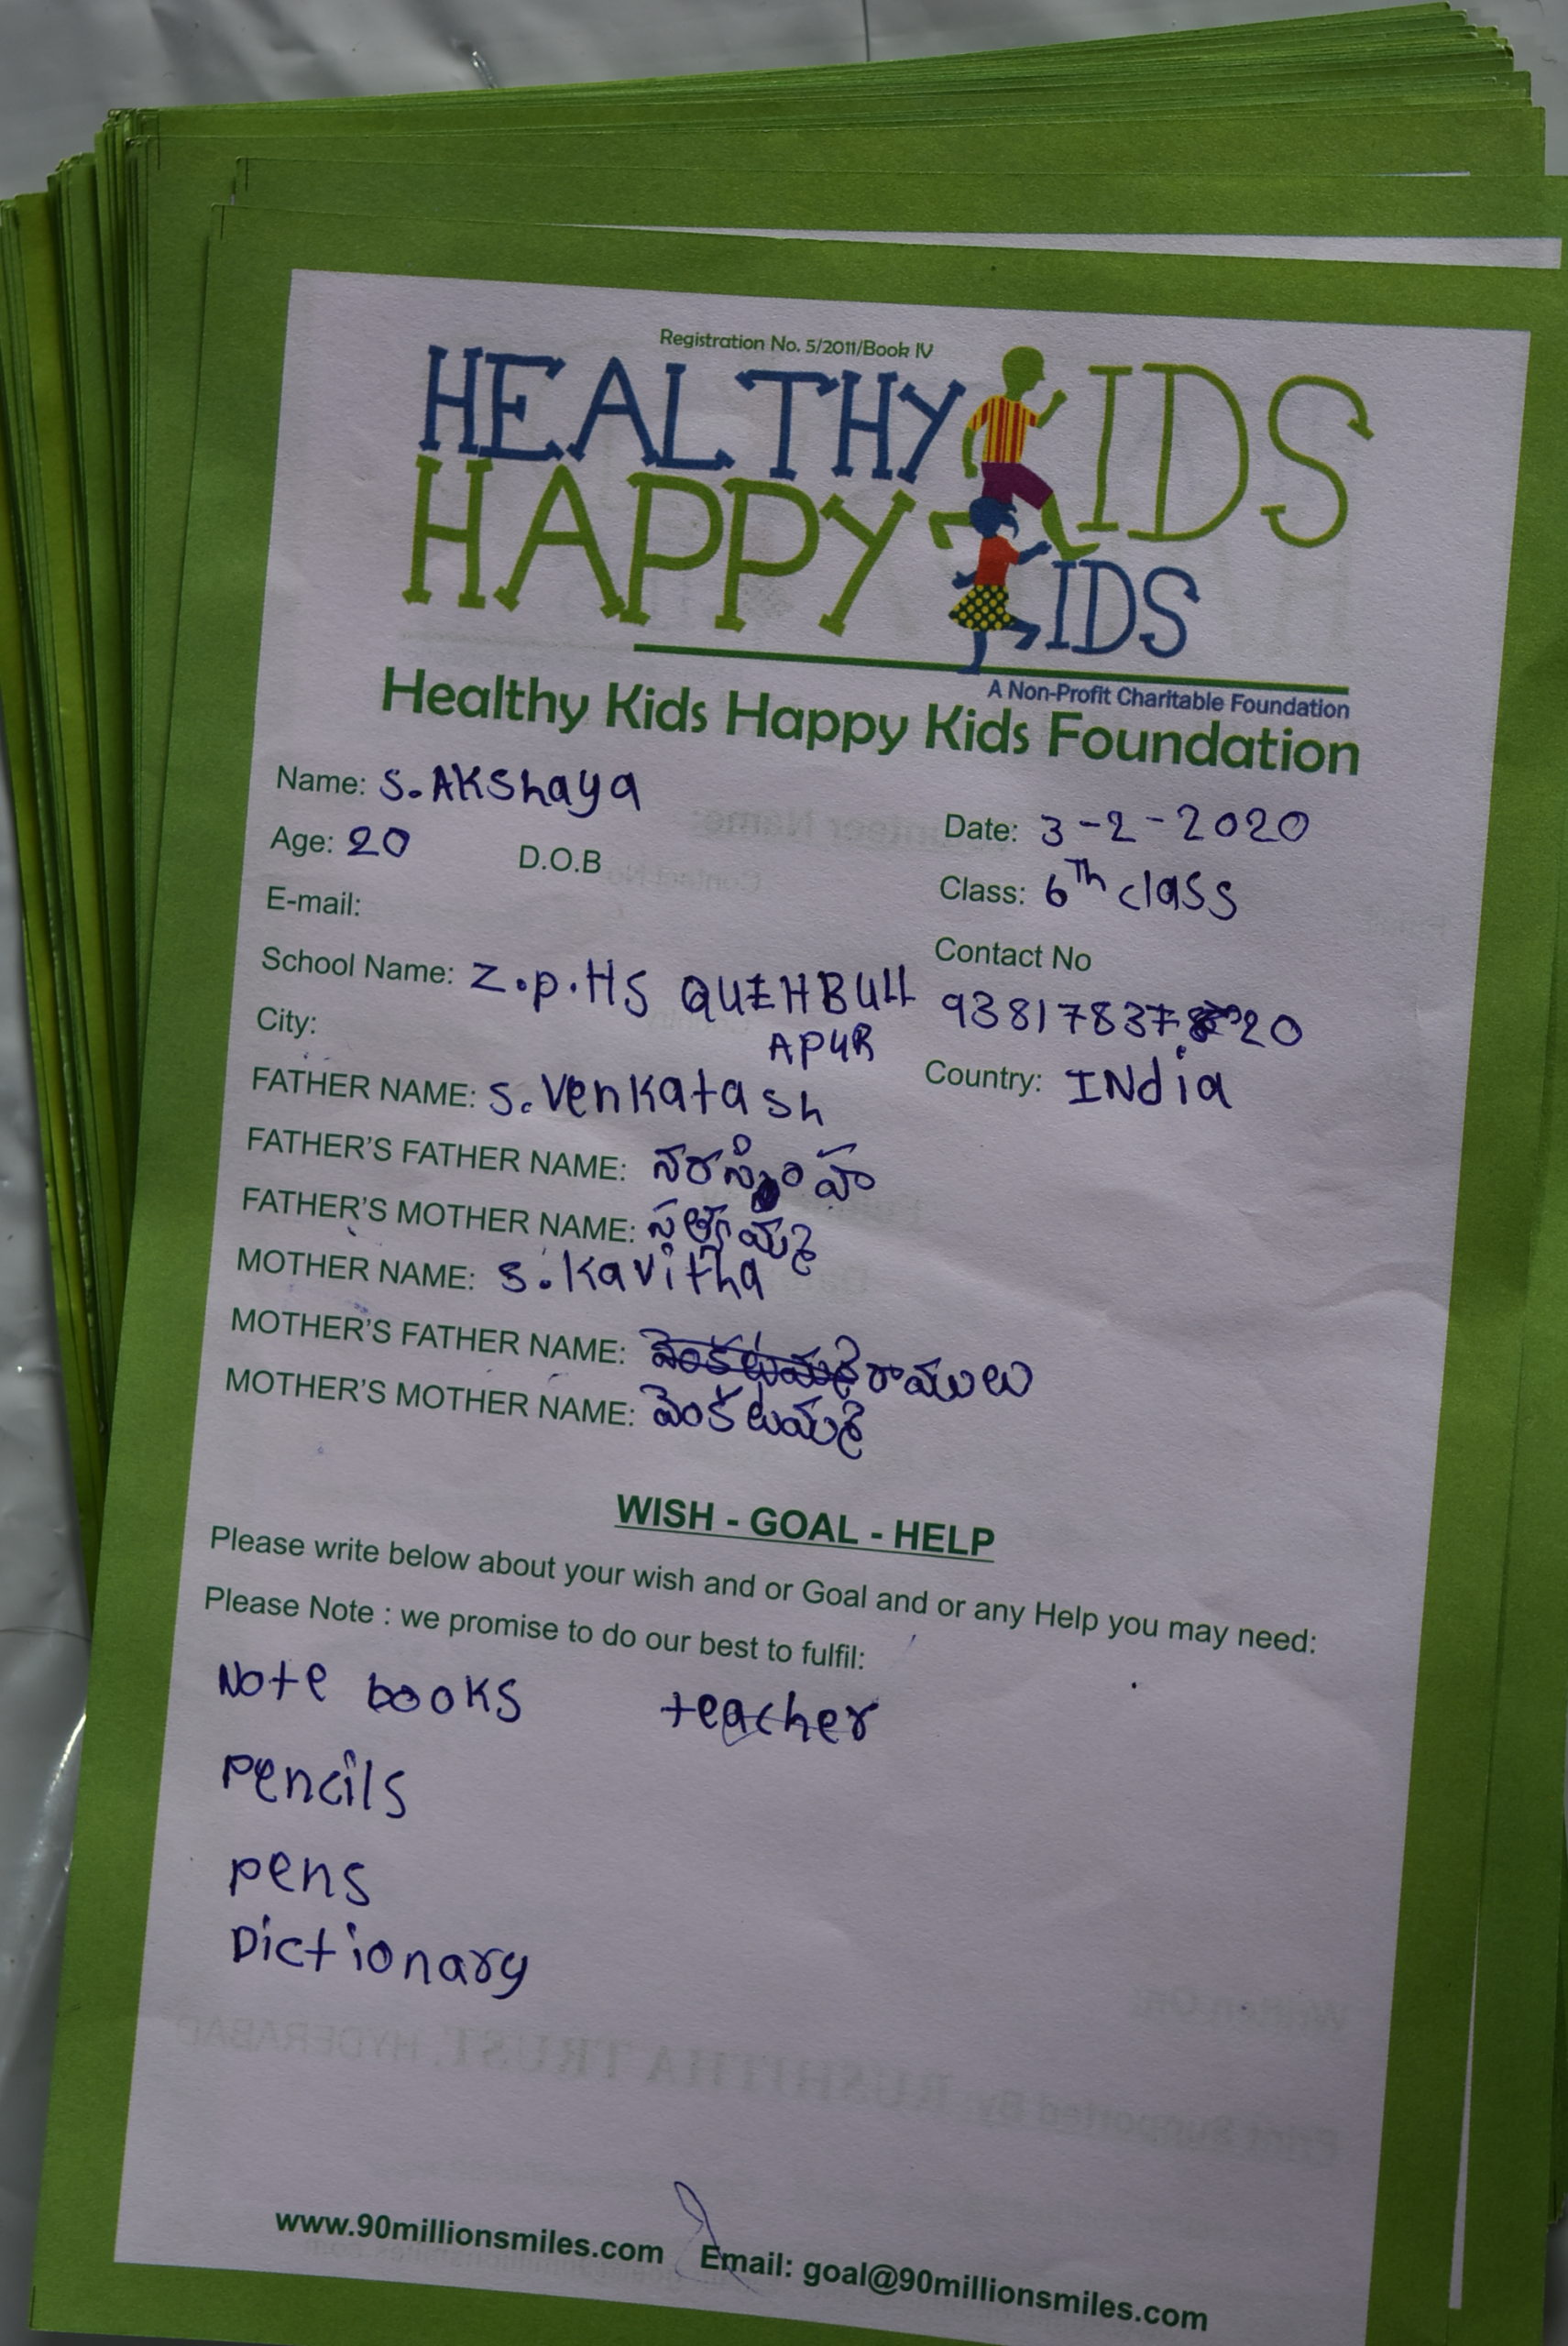 Registration No. 5/2011/Book IV
HEALTHY KIDS
HAPPY KIDS
A Non-Profit Charitable Foundation
Healthy Kids Happy Kids Foundation
Name: S. AKShaya
Date: 3-2-2020
Age: 20 D.O.B
Class: 6Th class
E-mail:
Contact No
School Name: Z.p.HS QUIHBULL
APUR
93817837 20
City:
Country: INdia
FATHER NAME: S. Venkatash
FATHER'S FATHER NAME: నరసింహ
FATHER'S MOTHER NAME: సత్యమ్మ
MOTHER NAME: S. Kavitha
MOTHER'S FATHER NAME: రాములు
MOTHER'S MOTHER NAME: వెంకటమ్మ
WISH - GOAL - HELP
Please write below about your wish and or Goal and or any Help you may need:
Please Note : we promise to do our best to fulfil:
Note books teacher
Pencils
pens
Dictionary
www.90millionsmiles.com Email: goal@90millionsmiles.com